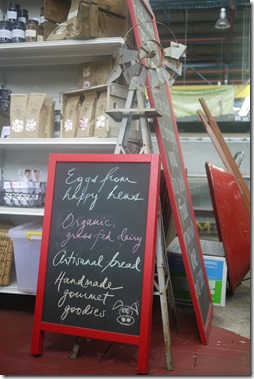 Eggs from
happy hens
Organic,
grass-fed dairy
Artisanal bread
Handmade
gourmet
goodies